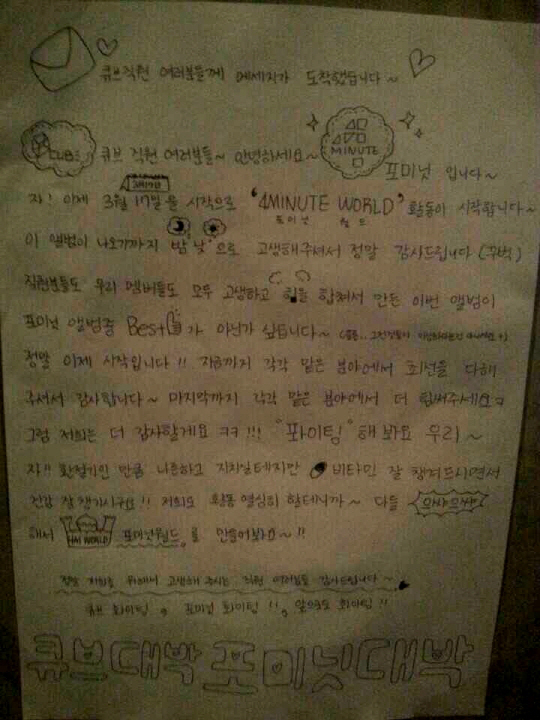 큐브직원 여러분들께 메세지가 도착했습니다~
CUBE 큐브 직원 여러분들~ 안녕하세요~ 4MINUTE 포미닛 입니다~
자! 이제 3월 17일을 시작으로 '4MINUTE WORLD' 활동이 시작됩니다~
포미닛 월드
이 앨범이 나오기까지 밤낮으로 고생해주셔서 정말 감사드립니다 (꾸벅)
직원분들도 우리 멤버들도 모두 고생하고 힘을 합쳐서 만든 이번 앨범이
포미닛 앨범중 Best가 아닌가 싶습니다~
정말 이제 시작입니다!! 지금까지 각각 맡은 분야에서 최선을 다해
주셔서 감사합니다~ 마지막까지 각각 맡은 분야에서 더 힘써주세요
그럼 저희는 더 감사할게요 ㅋㅋ!!! "화이팅" 해봐요 우리~
자!! 환절기인 만큼 나른하고 지치실테지만 비타민 잘 챙겨드시면서
건강 잘 챙기시구요!! 저희도 활동 열심히 할테니까~ 다들 으쌰으쌰
해서 4M WORLD 포미닛월드 를 만들어봐요~!!
정말 저희를 위해서 고생해 주시는 직원 여러분들 감사드립니다~
큐브 화이팅, 포미닛 화이팅!! 앞으로도 화이팅!!
큐브대박 포미닛대박